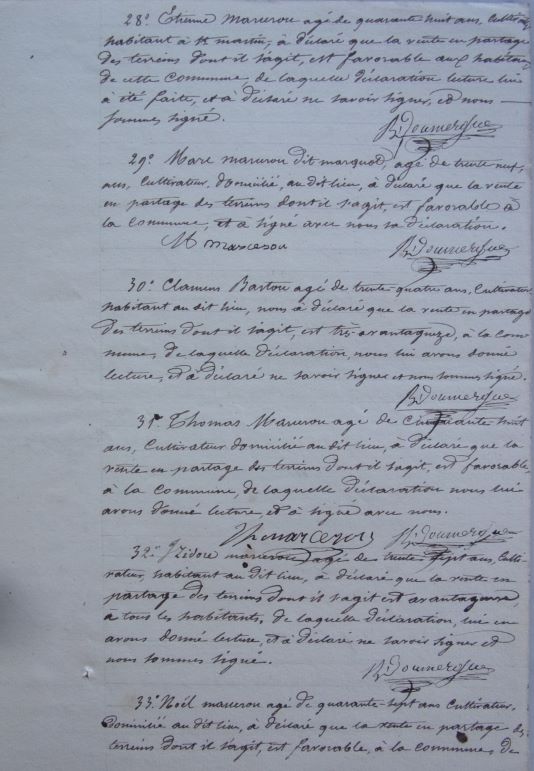 28° Étienne Marcerou agé de quarante huit ans, cultivr
habitant à St martin, à déclaré que la vente en partage
des terreins dont il s'agit, est favorable aux habitans
de cette Commune, de laquelle déclaration lecture lui
à été faite, et à déclaré ne savoir signer, et nous
sommes signé.
R Doumergue
29° Marc marcerou dit marquod, agé de trente neuf
ans, Cultivateur, domicilié, au dit lieu, à déclaré que la vente
en partage des terreins dont il s'agit, est favorable à
la commune, et à signé avec nous sa déclaration.
M marcerou R Doumergue
30° Clamens Bartou agé de trente quatre ans, Cultivateur
habitant au dit lieu, nous à déclaré que la vente en partage
des terreins dont il s'agit, est très avantageuze, à la com
mune, de laquelle déclaration, nous lui avons donné
lecture, et à déclaré ne savoir signer et nous sommes signé.
R Doumergue
31° Thomas Marcerou agé de cinquante huit
ans, Cultivateur domicilié au dit lieu, à déclaré que la
vente en partage des terreins dont il s'agit, est favorable,
à la Commune, de laquelle déclaration nous lui
avons donné lecture, et à signé avec nous.
R Doumergue
32° Izidore marcerou agé de trente sept ans, Culti-
vateur, habitant au dit lieu, à déclaré que la vente en
partage des terreins dont il s'agit est avantageuse,
à tous les habitants, de laquelle déclaration, lui en
avons donné lecture, et à déclaré ne savoir signer et
nous sommes signé.
R Doumergue
33° Noël marcerou agé de quarante sept ans Cultivateur,
Domicilié au dit lieu, à déclaré que la vente en partage des
terreins dont il s'agit, est favorable, à la commune, de